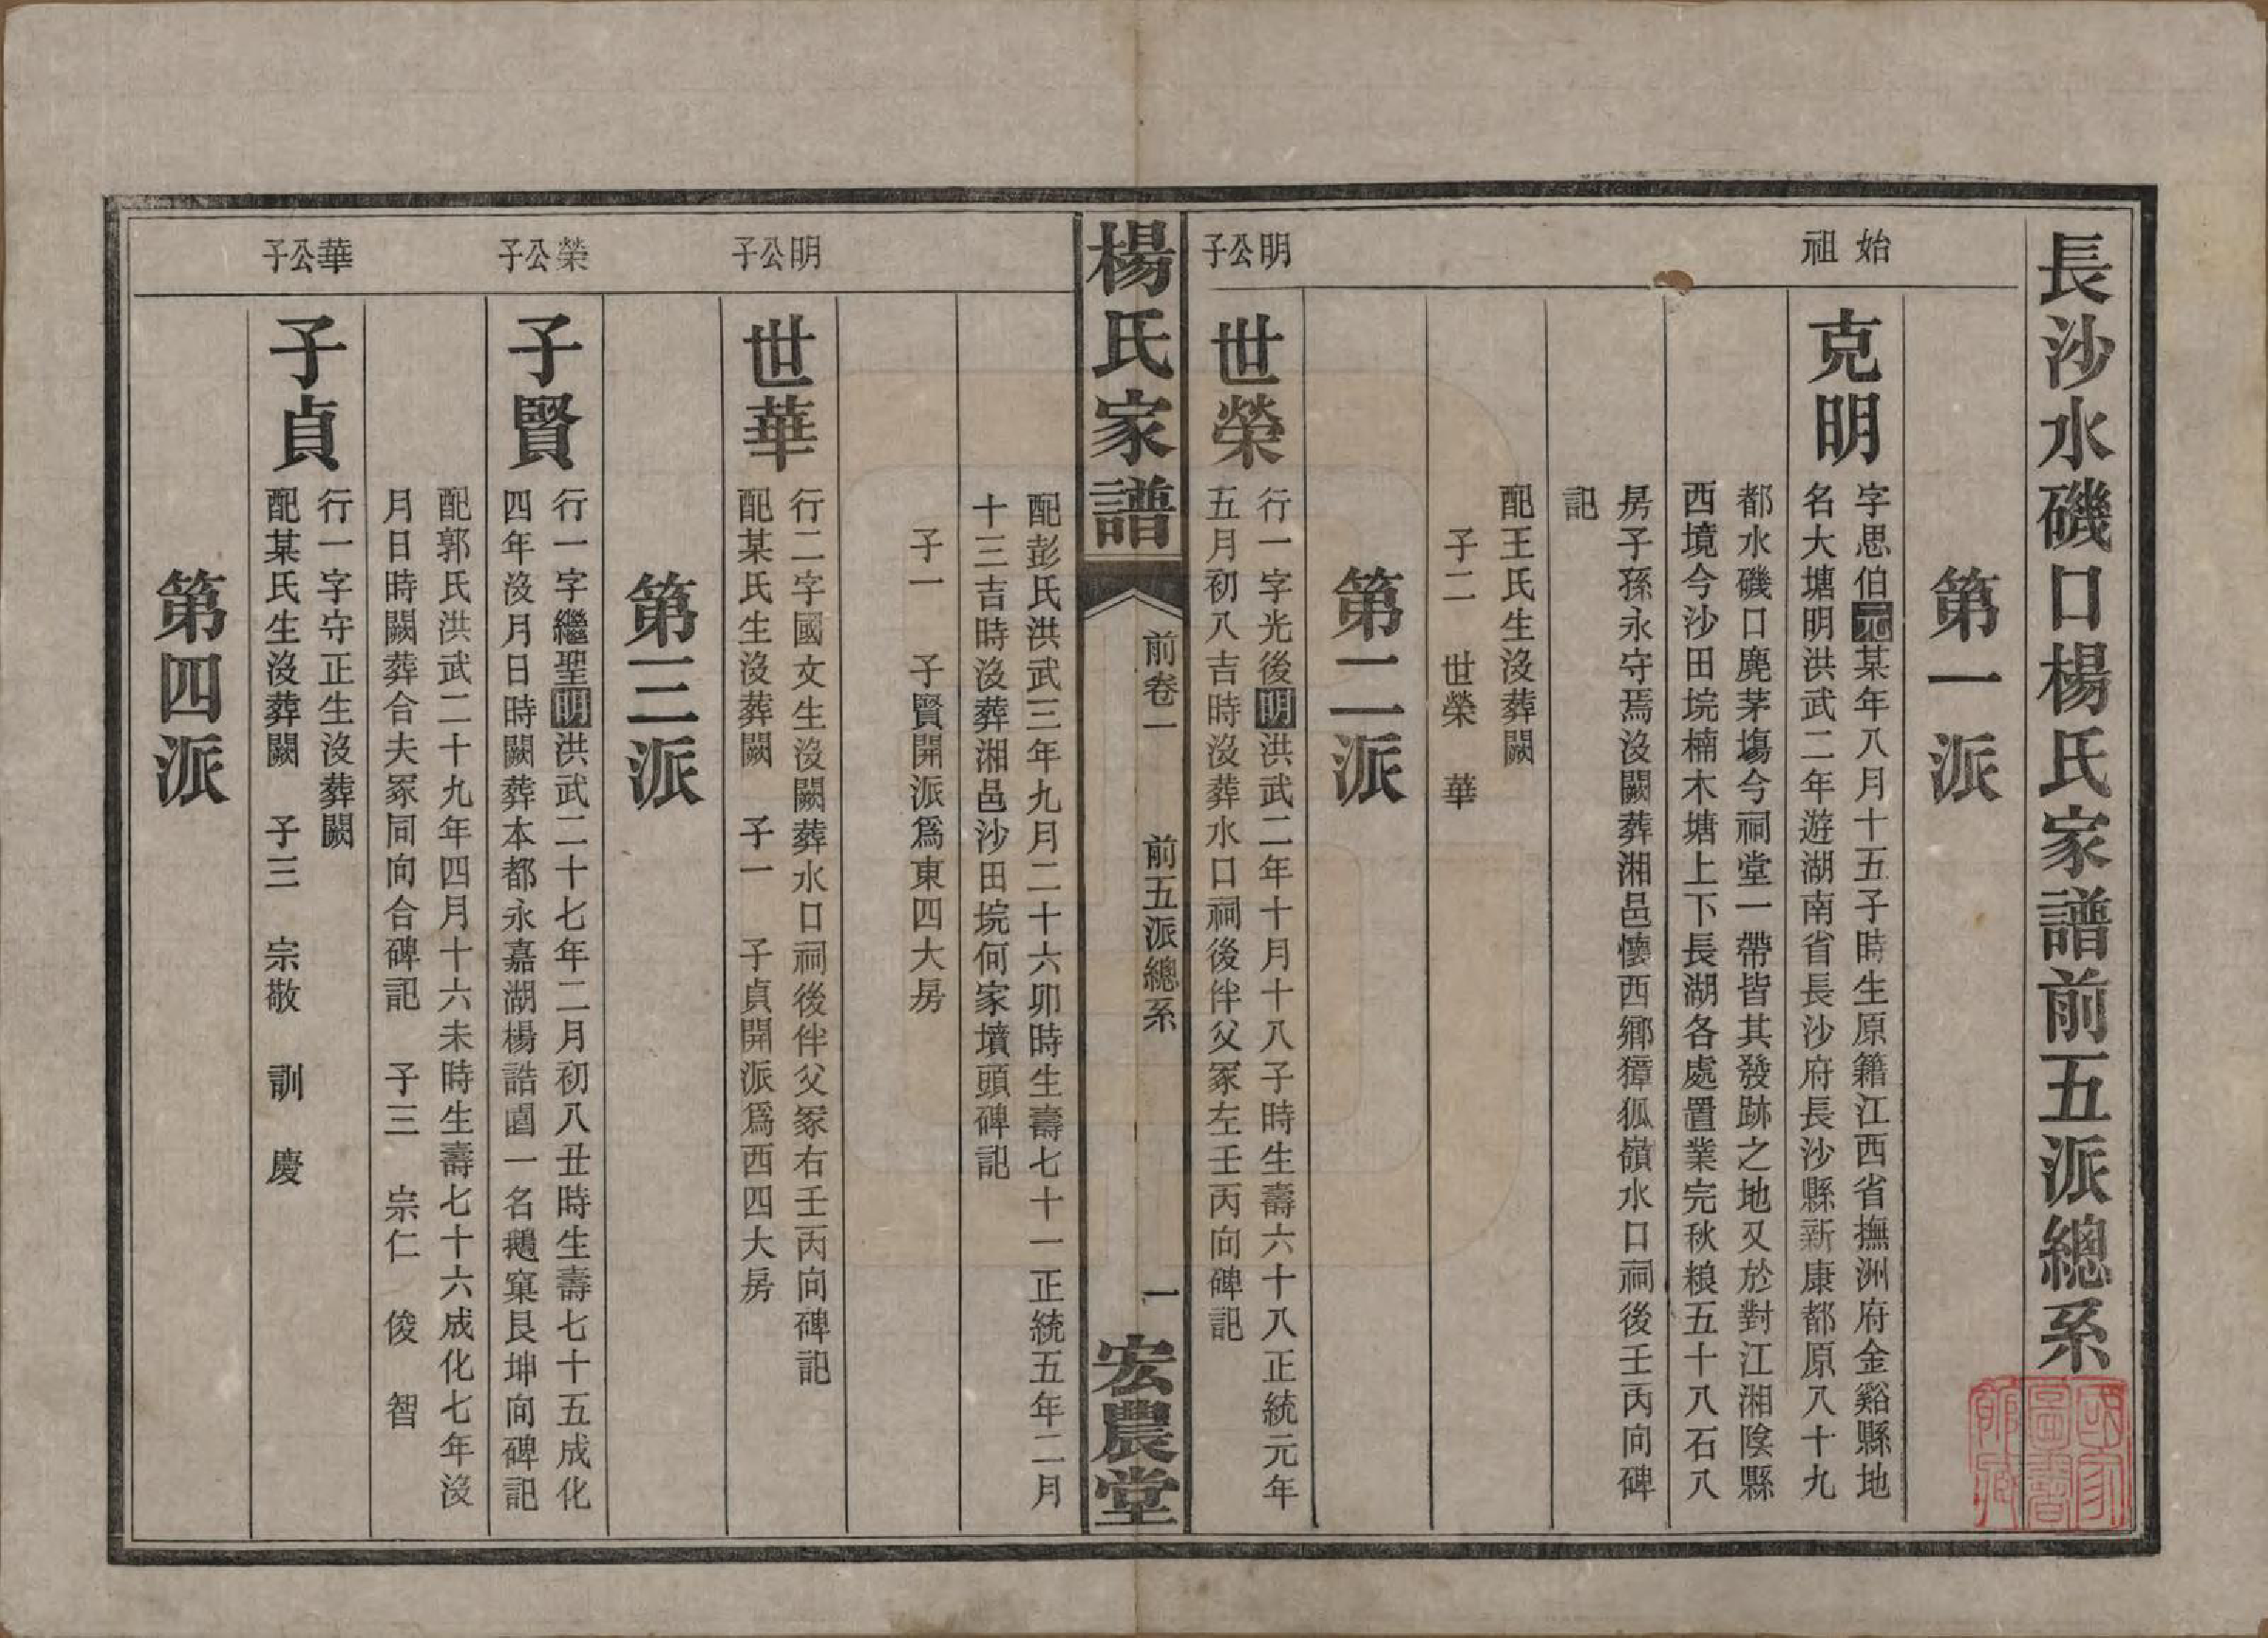 長沙水磯口楊氏家譜前五派總系
第一派
始祖
克明
字思伯元某年八月十五子時生原籍江西省撫洲府金谿縣地
名大塘明洪武二年遊湖南省長沙府長沙縣新康都原八十九
都水磯口麂茅塲今祠堂一帶皆其發跡之地又於對江湘陰縣
西境今沙田垸楠木塘上下長湖各處置業完秋粮五十八石八
房子孫永守焉沒闕葬湘邑懷西鄉獐狐嶺水口祠後壬丙向碑
記
配王氏生沒葬闕
子二 世榮 華
第二派
明公子
世榮
行一字光後明洪武二年十月十八子時生壽六十八正統元年
五月初八吉時沒葬水口祠後伴父冢左壬丙向碑記
楊氏家譜
前卷一 前五派總系
一
宏農堂
配彭氏洪武三年九月二十六卯時生壽七十一正統五年二月
十三吉時沒葬湘邑沙田垸何家墳頭碑記
子一 子賢開派爲東四大房
明公子
世華
行二字國文生沒闕葬水口祠後伴父冢右壬丙向碑記
配某氏生沒葬闕 子一 子貞開派爲西四大房
第三派
榮公子
子賢
行一字繼聖明洪武二十七年二月初八丑時生壽七十五成化
四年沒月日時闕葬本都永嘉湖楊誥園一名鵝窠艮坤向碑記
配郭氏洪武二十九年四月十六未時生壽七十六成化七年沒
月日時闕葬合夫冢同向合碑記 子三 宗仁 俊 智
華公子
子貞
行一字守正生沒葬闕
配某氏生沒葬闕 子三 宗敬 訓 慶
第四派
國家圖書館藏